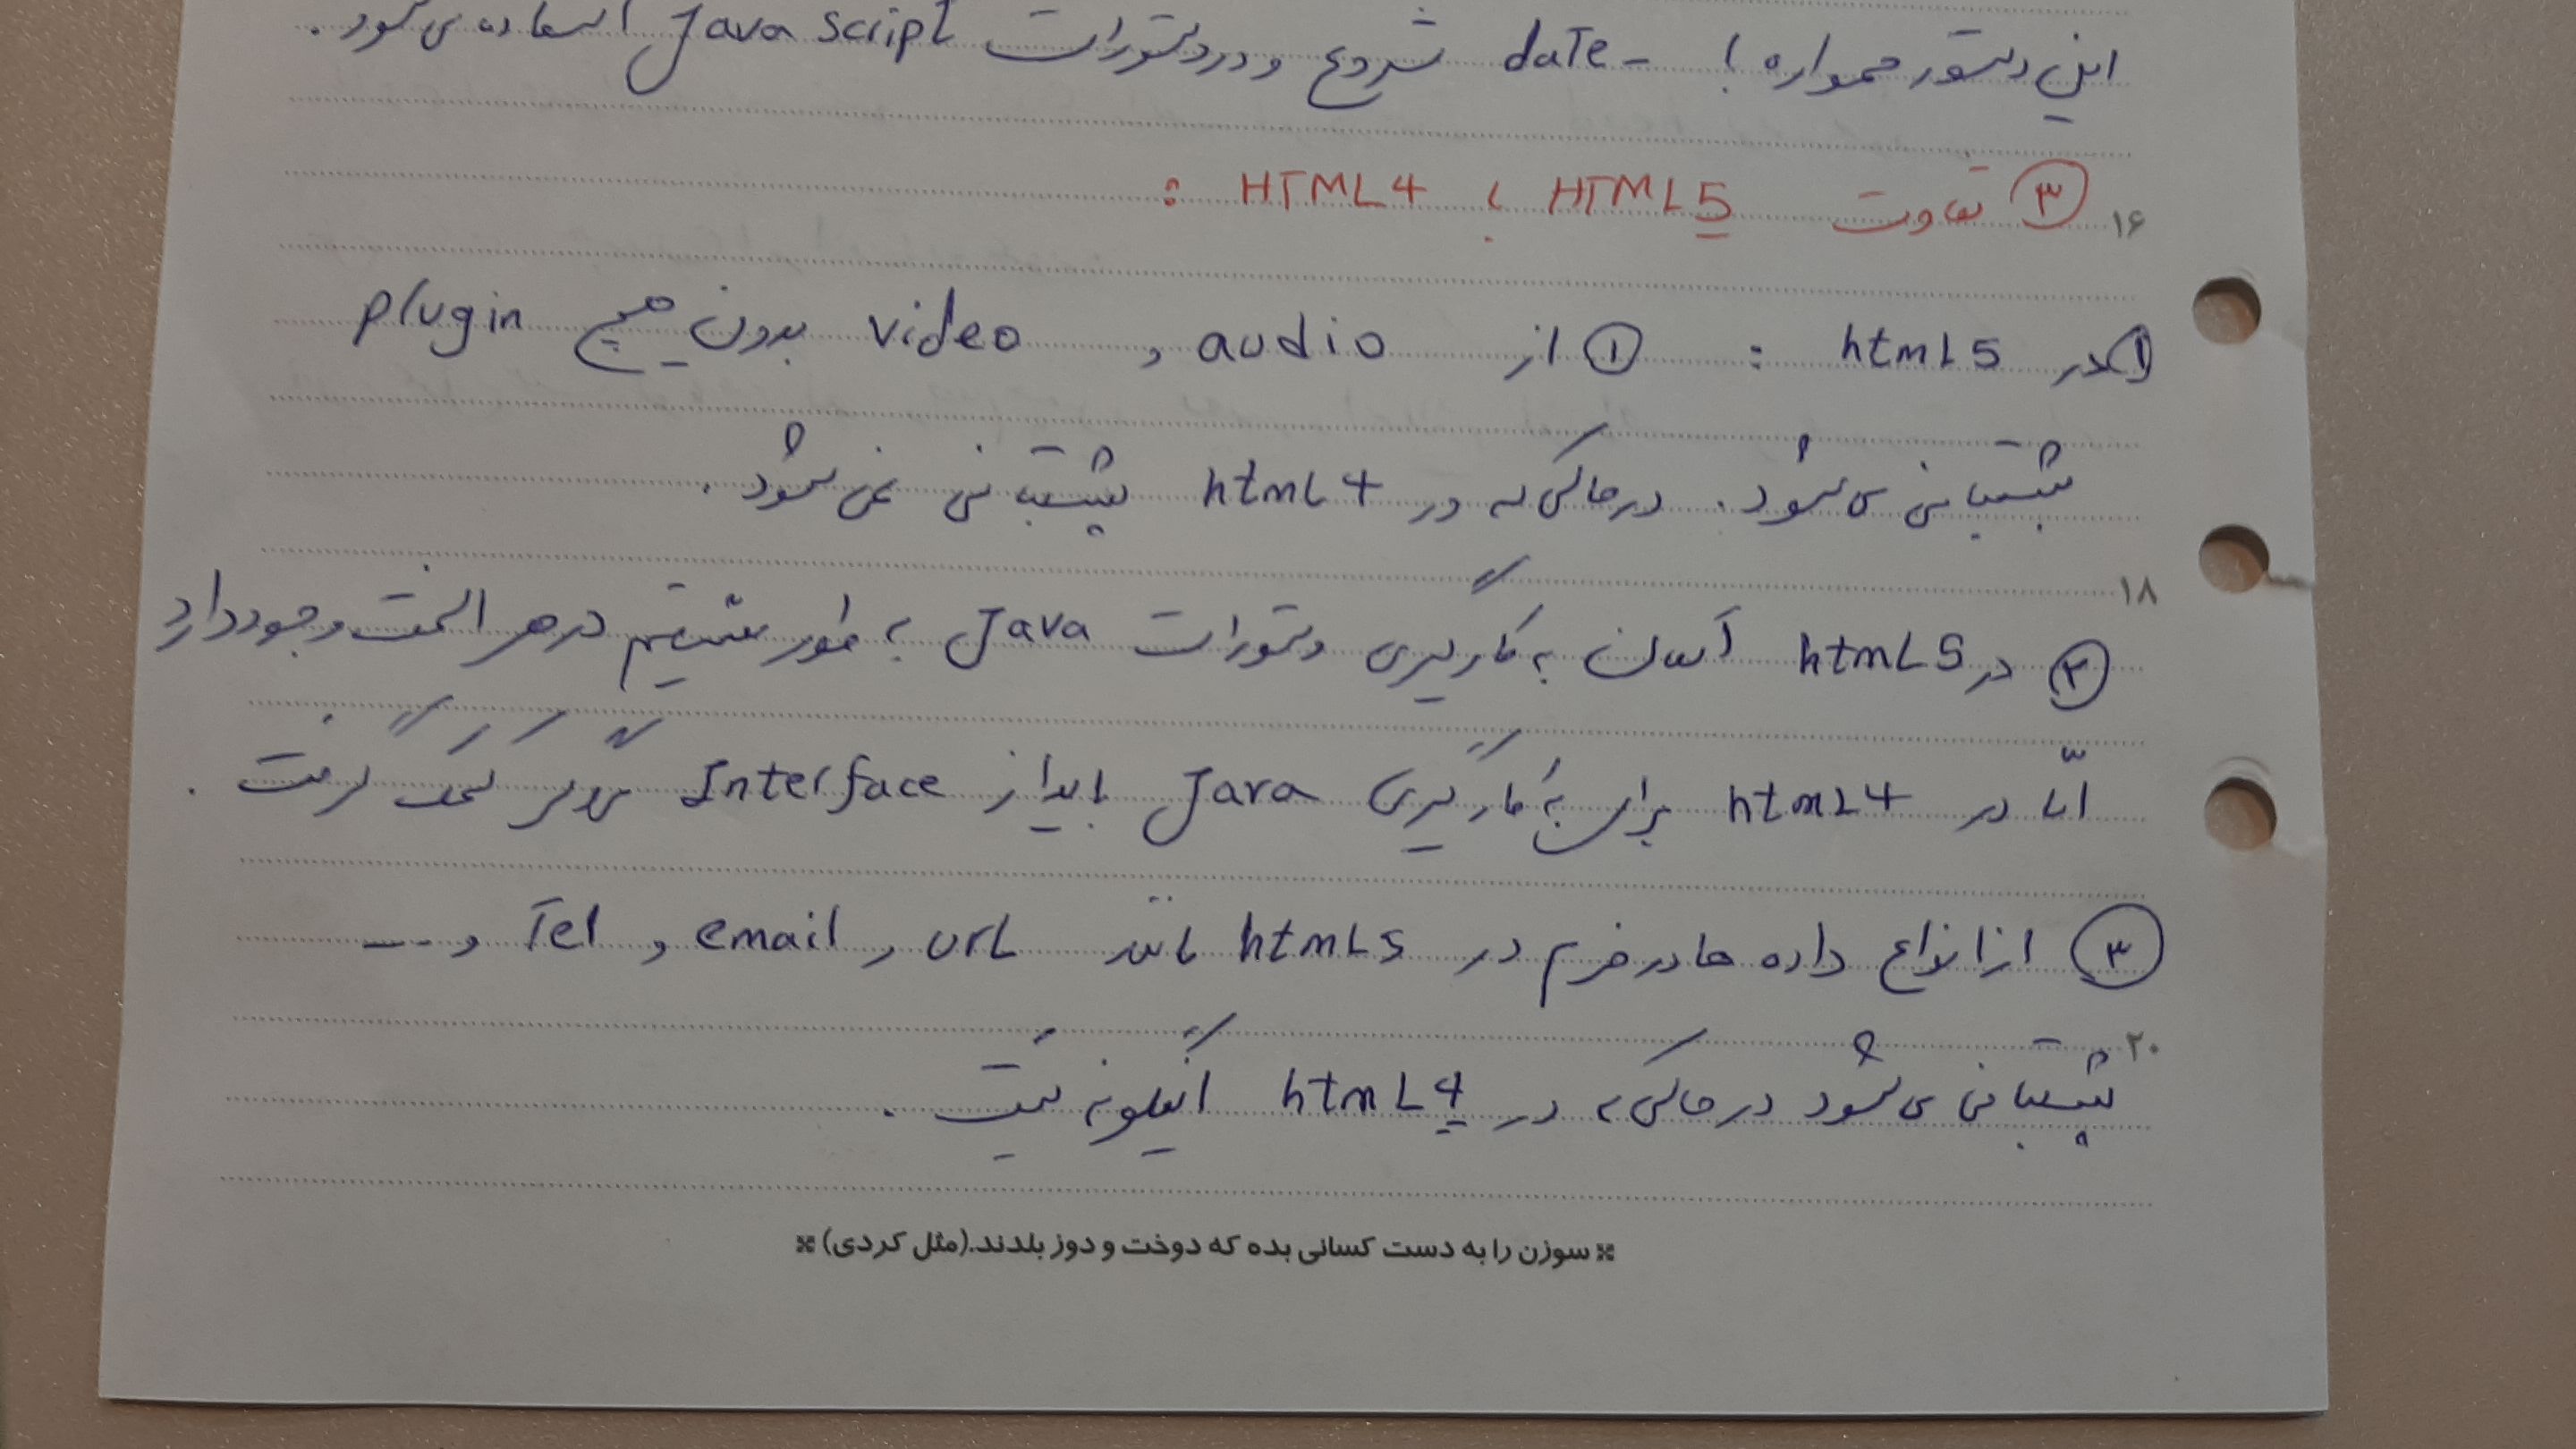 این دستور همواره با date- شروع و در دستورات Java Script استفاده می شود.
۱۶
③ تفاوت HTML5 با HTML4 :
① در htmL5 : ① از audio و video بدون هیچ plugin
پشتیبانی می شود. در حالی که در htmL4 پشتیبانی نمی شود.
۱۸
② در htmL5 آسان به کارگیری دستورات Java به طور مستقیم در هر المنت وجود دارد
امّا در htmL4 برای به کارگیری Java باید از Interface دیگر کمک گرفت.
③ از انواع داده ها در فرم در htmL5 مانند urL و email و Tel و ...
۲۰
پشتیبانی می شود در حالی که در htmL4 اینگونه نیست.
※ سوزن را به دست کسانی بده که دوخت و دوز بلدند.(مثل کردی) ※